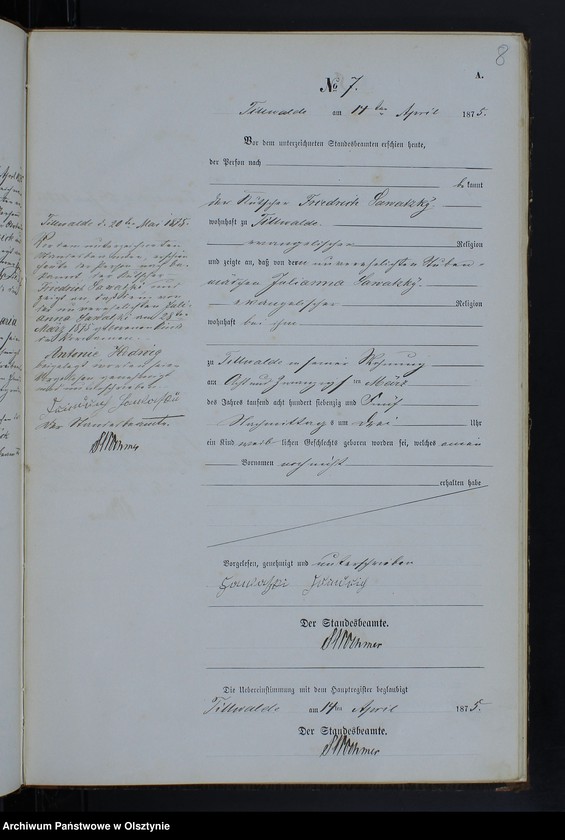 8
A.
№ 7.
Tillwalde am 14 ten April 1875.
Vor dem unterzeichneten Standesbeamten erschien heute,
der Person nach
be kannt
der Kutscher Friedrich Sawatzky
wohnhaft zu Tillwalde.
evangelischer Religion
und zeigte an, daß von der unverehelichten
Julianna Sawatzky
evangelischer Religion
wohnhaft bei ihm
zu Tillwalde in seiner Wohnung
am Acht und zwanzigsten März
des Jahres tausend acht hundert siebenzig und Fünf
Nachmittags um Drei Uhr
ein Kind weib lichen Geschlechts geboren worden sei, welches einen
Vornamen noch nicht
erhalten habe
Vorgelesen, genehmigt und unterschrieben
Der Standesbeamte.
Die Uebereinstimmung mit dem Hauptregister beglaubigt
Tillwalde am 14 ten April 1875.
Der Standesbeamte.
Tillwalde d. 20 ten Mai 1875.
Vor dem unterzeichneten
Standesbeamten erschien
heute der Person nach be-
kannt der Kutscher
Friedrich Sawatzki und
zeigte an, daß dem von
der unverehelichten Juli-
anna Sawatzki am 28 ten
März 1875 geborenen Kinde
die Vornamen
Antonie Hedwig
beigelegt worden seien
Vorgelesen genehmigt
und unterschrieben
Der Standesbeamte
Archiwum Państwowe w Olsztynie